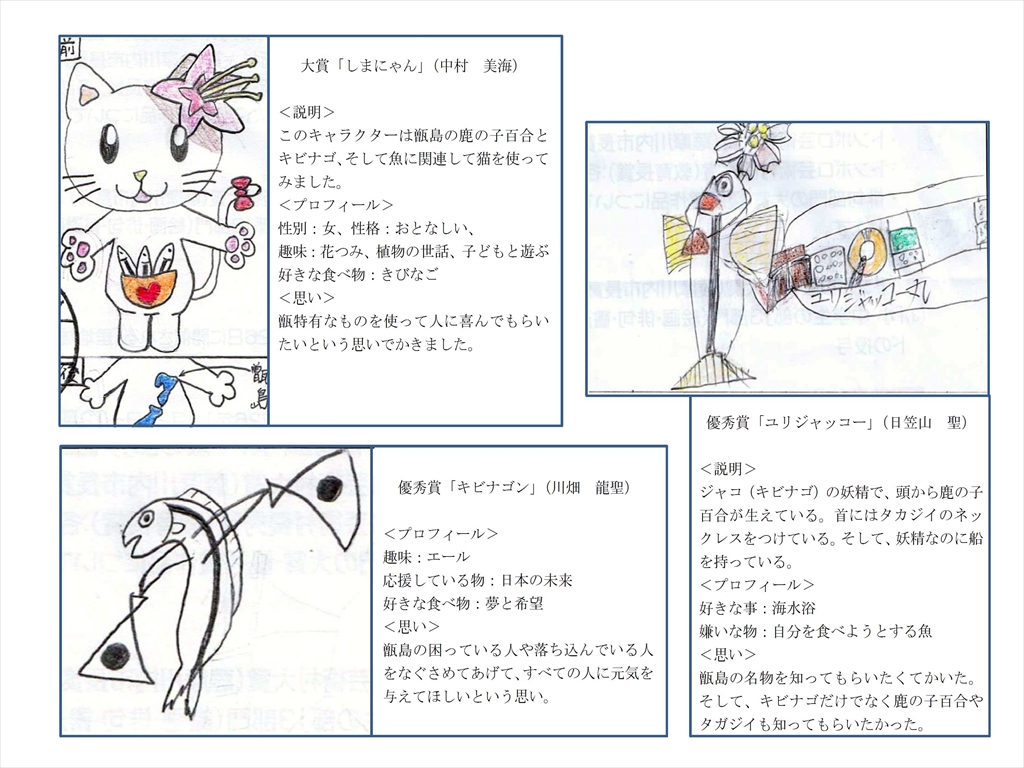 前
大賞「しまにゃん」（中村　美海）
＜説明＞
このキャラクターは甑島の鹿の子百合と
キビナゴ、そして魚に関連して猫を使って
みました。
＜プロフィール＞
性別：女、性格：おとなしい、
趣味：花つみ、植物の世話、子どもと遊ぶ
好きな食べ物：きびなご
＜思い＞
甑特有なものを使って人に喜んでもらい
たいという思いでかきました。
後
甑島
ユリジャッコー丸
優秀賞「ユリジャッコー」（日笠山　聖）
＜説明＞
ジャコ（キビナゴ）の妖精で、頭から鹿の子
百合が生えている。首にはタカジイのネッ
クレスをつけている。そして、妖精なのに船
を持っている。
＜プロフィール＞
好きな事：海水浴
嫌いな物：自分を食べようとする魚
＜思い＞
甑島の名物を知ってもらいたくてかいた。
そして、キビナゴだけでなく鹿の子百合や
タガジイも知ってもらいたかった。
優秀賞「キビナゴン」（川畑　龍聖）
＜プロフィール＞
趣味：エール
応援している物：日本の未来
好きな食べ物：夢と希望
＜思い＞
甑島の困っている人や落ち込んでいる人
をなぐさめてあげて、すべての人に元気を
与えてほしいという思い。